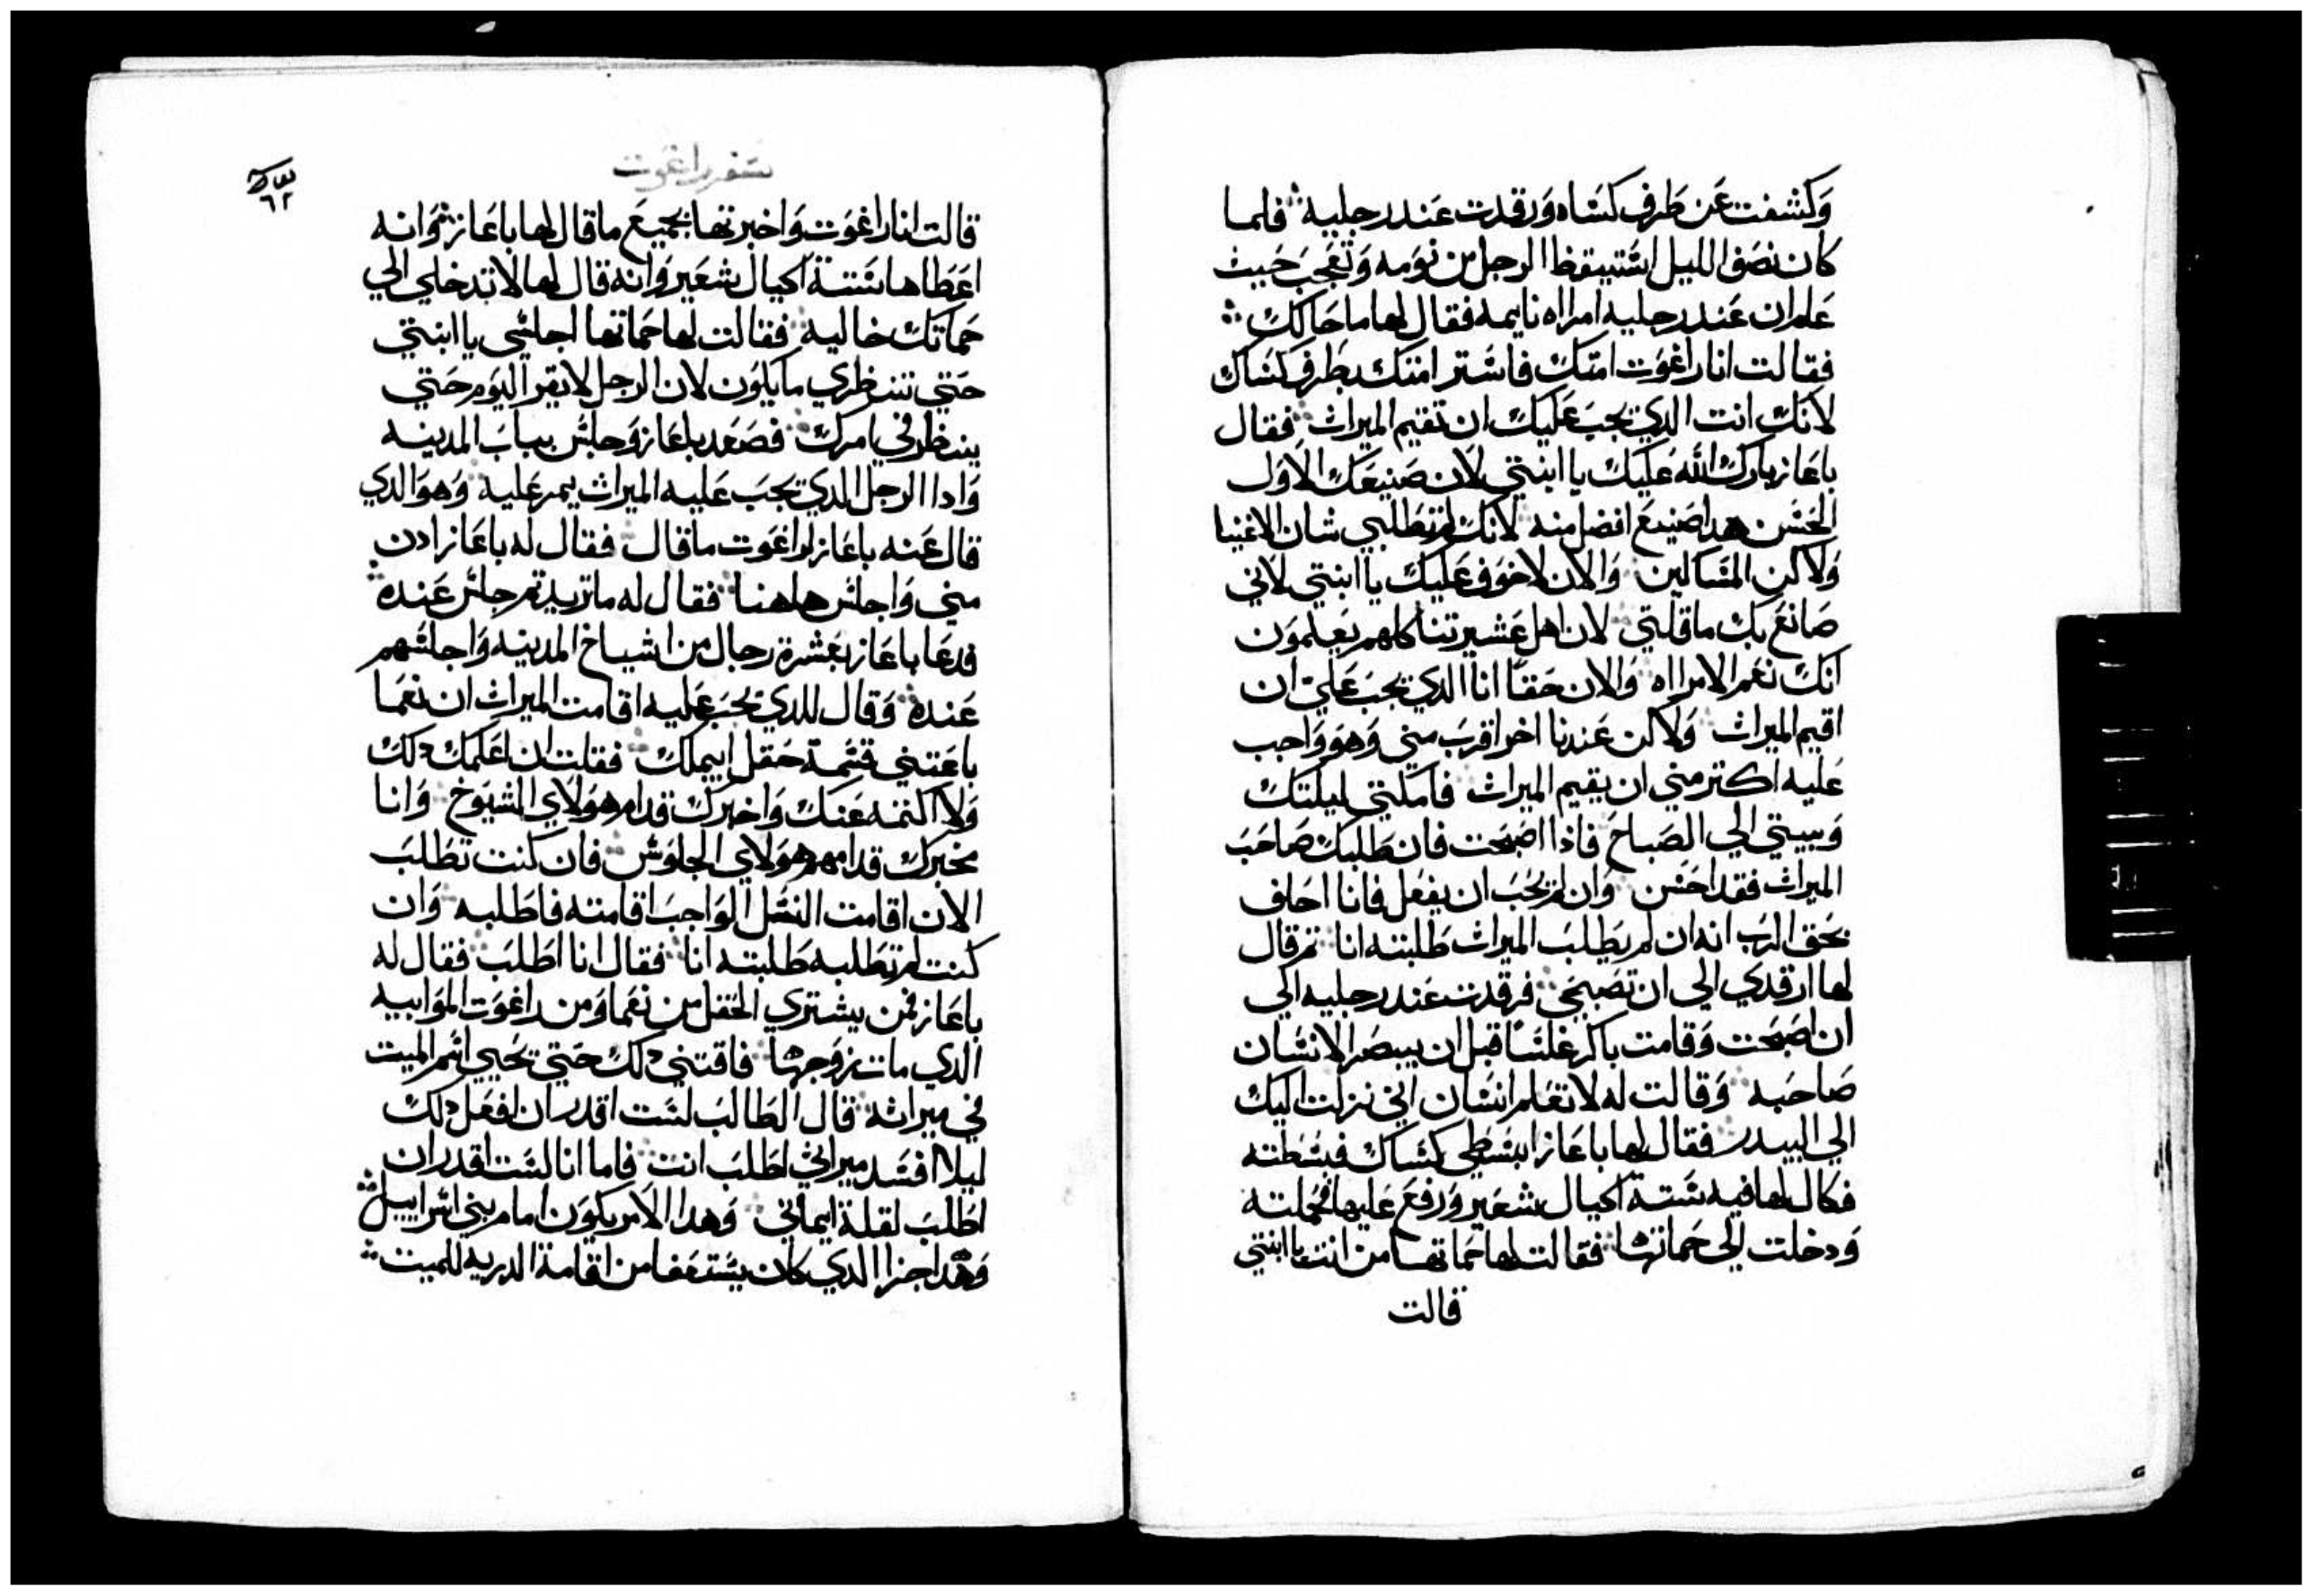 وكشفت عن طرف كساه ورقدت عند رجليه فلما
كان نصف الليل استيقظ الرجل من نومه وتعجب حيث
علم ان عند رجليه امراه نايمه فقال لها ما حالك
فقالت انا راغوت امتك فاستر امتك بطرف كساك
لانك انت الدي يجب عليك ان تقيم الميراث فقال
باعاز بارك الله عليك يا ابنتي لان صنيعك الاول
الحسن هدا صنيع افضل منه لانك لم تطلبي شان الاغنيا
ولاكن المساكين والان لا خوف عليك يا ابنتي لاني
صانع بك ما قلتي لان اهل عشيرتنا كلهم يعلمون
انك نعم الامراه والان حقا انا الدي يجب علي ان
اقيم الميراث ولاكن عندنا اخر اقرب مني وهو واجب
عليه اكتر مني ان يقيم الميراث فامكتي ليلتك
وبيتي الي الصباح فاذا اصبحت فان طلبك صاحب
الميراث فقد احسن وان لم يحب ان يفعل فانا احلف
بحق الرب انه ان لم يطلب الميراث طلبته انا تم قال
لها ارقدي الي ان تصبحي فرقدت عند رجليه الي
ان اصبحت وقامت باكر غلسا قبل ان يبصر الانسان
صاحبه وقالت له لا تعلم انسان اني نزلت اليك
الي البيدر فقال لها باعاز ابسطي كساك فبسطته
فكال لها فيه ستة اكيال شعير ورفع عليها فحملته
ودخلت الي حماتها فقالت لها حماتها من انت يا ابنتي
قالت
سفر راغوت
قالت انا راغوت واخبرتها بجميع ما قال لها باعاز وانه
اعطاها ستة اكيال شعير وانه قال لها لا تدخلي الي
حماتك خاليه فقالت لها حماتها اجلسي يا ابنتي
حتي تنظري ما يكون لان الرجل لا يقر اليوم حتي
ينظر في امرك فصعد باعاز وجلس بباب المدينه
وادا الرجل الدي يجب عليه الميراث يمر عليه وهو الدي
قال عنه باعاز لراغوت ما قال فقال له باعاز ادن
مني واجلس هاهنا فقال له ما تريد تم جلس عنده
فدعا باعاز بعشرة رجال من اشياخ المدينه واجلسهم
عنده وقال للدي يجب عليه اقامت الميراث ان نعما
باعتني قسمة حقل ابيملك فقلت ان اعلمك دلك
ولا اكتمه عنك واخبرك قدام هولاي الشيوخ وانا
مخبرك قدامهم هولاي الجلوس فان كنت تطلب
الان اقامت النسل الواجب اقامته فاطلبه وان
كنت لم تطلبه طلبته انا فقال انا اطلب فقال له
باعاز فمن يشتري الحقل من نعما ومن راغوت الموابيه
الدي مات زوجها فاقتني دلك حتي تحيي اسم الميت
في ميراثه قال الطالب لست اقدر ان افعل دلك
ليلا افسد ميراثي اطلب انت فاما انا لست اقدر ان
اطلب لقلة ايماني وهدا الامر يكون امام بني اسراييل
وهدا جزا الدي كان يستعفا من اقامة الدريه للميت